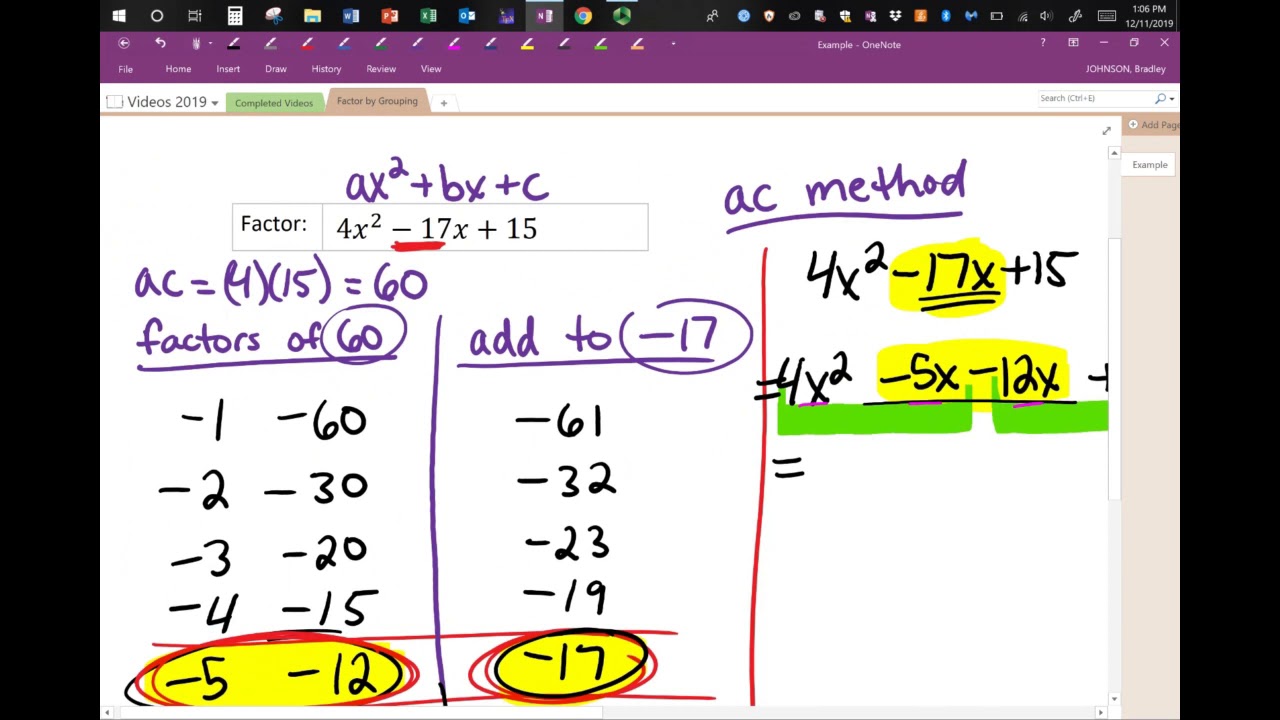 1:06 PM
12/11/2019
Example - OneNote
?
File Home Insert Draw History Review View
JOHNSON, Bradley
Videos 2019 Completed Videos Factor by Grouping +
Search (Ctrl+E)
Add Page
Example
ax² + bx + c
Factor: 4x² − 17x + 15
ac = (4)(15) = 60
factors of 60
add to −17
−1 −60 −61
−2 −30 −32
−3 −20 −23
−4 −15 −19
−5 −12 −17
ac method
4x² −17x +15
= 4x² −5x −12x +
=